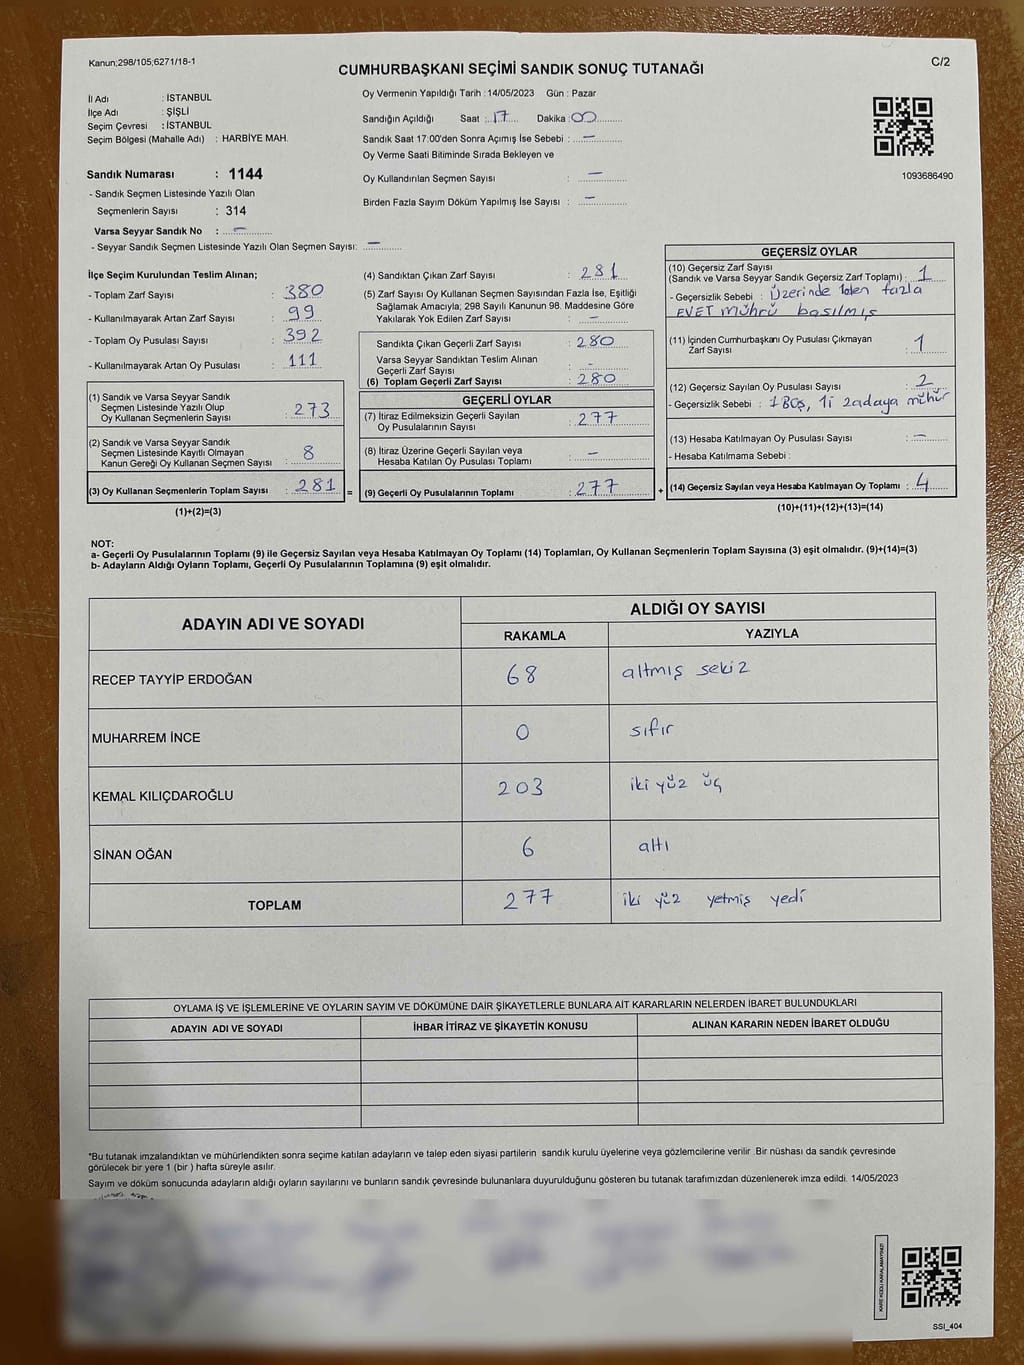 Kanun;298/105;6271/18-1
C/2
CUMHURBAŞKANI SEÇİMİ SANDIK SONUÇ TUTANAĞI
İl Adı : İSTANBUL
İlçe Adı : ŞİŞLİ
Seçim Çevresi : İSTANBUL
Seçim Bölgesi (Mahalle Adı) : HARBİYE MAH.
Sandık Numarası : 1144
- Sandık Seçmen Listesinde Yazılı Olan
Seçmenlerin Sayısı : 314
Varsa Seyyar Sandık No : –
- Seyyar Sandık Seçmen Listesinde Yazılı Olan Seçmen Sayısı: –
Oy Vermenin Yapıldığı Tarih : 14/05/2023 Gün : Pazar
Sandığın Açıldığı Saat : 17 Dakika : 00
Sandık Saat 17:00'den Sonra Açımış İse Sebebi : –
Oy Verme Saati Bitiminde Sırada Bekleyen ve
Oy Kullandırılan Seçmen Sayısı : –
Birden Fazla Sayım Döküm Yapılmış İse Sayısı : –
1093686490
İlçe Seçim Kurulundan Teslim Alınan;
- Toplam Zarf Sayısı : 380
- Kullanılmayarak Artan Zarf Sayısı : 99
- Toplam Oy Pusulası Sayısı : 392
- Kullanılmayarak Artan Oy Pusulası : 111
(1) Sandık ve Varsa Seyyar Sandık
Seçmen Listesinde Yazılı Olup
Oy Kullanan Seçmenlerin Sayısı : 273
(2) Sandık ve Varsa Seyyar Sandık
Seçmen Listesinde Kayıtlı Olmayan
Kanun Gereği Oy Kullanan Seçmen Sayısı : 8
(3) Oy Kullanan Seçmenlerin Toplam Sayısı : 281 =
(1)+(2)=(3)
(4) Sandıktan Çıkan Zarf Sayısı : 281
(5) Zarf Sayısı Oy Kullanan Seçmen Sayısından Fazla İse, Eşitliği
Sağlamak Amacıyla; 298 Sayılı Kanunun 98. Maddesine Göre
Yakılarak Yok Edilen Zarf Sayısı : –
Sandıkta Çıkan Geçerli Zarf Sayısı : 280
Varsa Seyyar Sandıktan Teslim Alınan
Geçerli Zarf Sayısı : –
(6) Toplam Geçerli Zarf Sayısı : 280
GEÇERLİ OYLAR
(7) İtiraz Edilmeksizin Geçerli Sayılan
Oy Pusulalarının Sayısı : 277
(8) İtiraz Üzerine Geçerli Sayılan veya
Hesaba Katılan Oy Pusulası Toplamı : –
(9) Geçerli Oy Pusulalarının Toplamı : 277 +
GEÇERSİZ OYLAR
(10) Geçersiz Zarf Sayısı
(Sandık ve Varsa Seyyar Sandık Geçersiz Zarf Toplamı) : 1
- Geçersizlik Sebebi : Üzerinde 1den fazla
EVET mührü basılmış
(11) İçinden Cumhurbaşkanı Oy Pusulası Çıkmayan
Zarf Sayısı : 1
(12) Geçersiz Sayılan Oy Pusulası Sayısı : 2
- Geçersizlik Sebebi : 1 Boş, 1i 2adaya mühür
(13) Hesaba Katılmayan Oy Pusulası Sayısı : –
- Hesaba Katılmama Sebebi :
(14) Geçersiz Sayılan veya Hesaba Katılmayan Oy Toplamı : 4
(10)+(11)+(12)+(13)=(14)
NOT:
a- Geçerli Oy Pusulalarının Toplamı (9) ile Geçersiz Sayılan veya Hesaba Katılmayan Oy Toplamı (14) Toplamları, Oy Kullanan Seçmenlerin Toplam Sayısına (3) eşit olmalıdır. (9)+(14)=(3)
b- Adayların Aldığı Oyların Toplamı, Geçerli Oy Pusulalarının Toplamına (9) eşit olmalıdır.
ADAYIN ADI VE SOYADI ALDIĞI OY SAYISI
RAKAMLA YAZIYLA
RECEP TAYYİP ERDOĞAN 68 altmış sekiz
MUHARREM İNCE 0 sıfır
KEMAL KILIÇDAROĞLU 203 iki yüz üç
SİNAN OĞAN 6 altı
TOPLAM 277 iki yüz yetmiş yedi
OYLAMA İŞ VE İŞLEMLERİNE VE OYLARIN SAYIM VE DÖKÜMÜNE DAİR ŞİKAYETLERLE BUNLARA AİT KARARLARIN NELERDEN İBARET BULUNDUKLARI
ADAYIN ADI VE SOYADI İHBAR İTİRAZ VE ŞİKAYETİN KONUSU ALINAN KARARIN NEDEN İBARET OLDUĞU
*Bu tutanak imzalandıktan ve mühürlendikten sonra seçime katılan adayların ve talep eden siyasi partilerin sandık kurulu üyelerine veya gözlemcilerine verilir .Bir nüshası da sandık çevresinde
görülecek bir yere 1 (bir ) hafta süreyle asılır.
Sayım ve döküm sonucunda adayların aldığı oyların sayılarını ve bunların sandık çevresinde bulunanlara duyurulduğunu gösteren bu tutanak tarafımızdan düzenlenerek imza edildi. 14/05/2023
KARE KODU KARALAMAYINIZ!
SSI_404